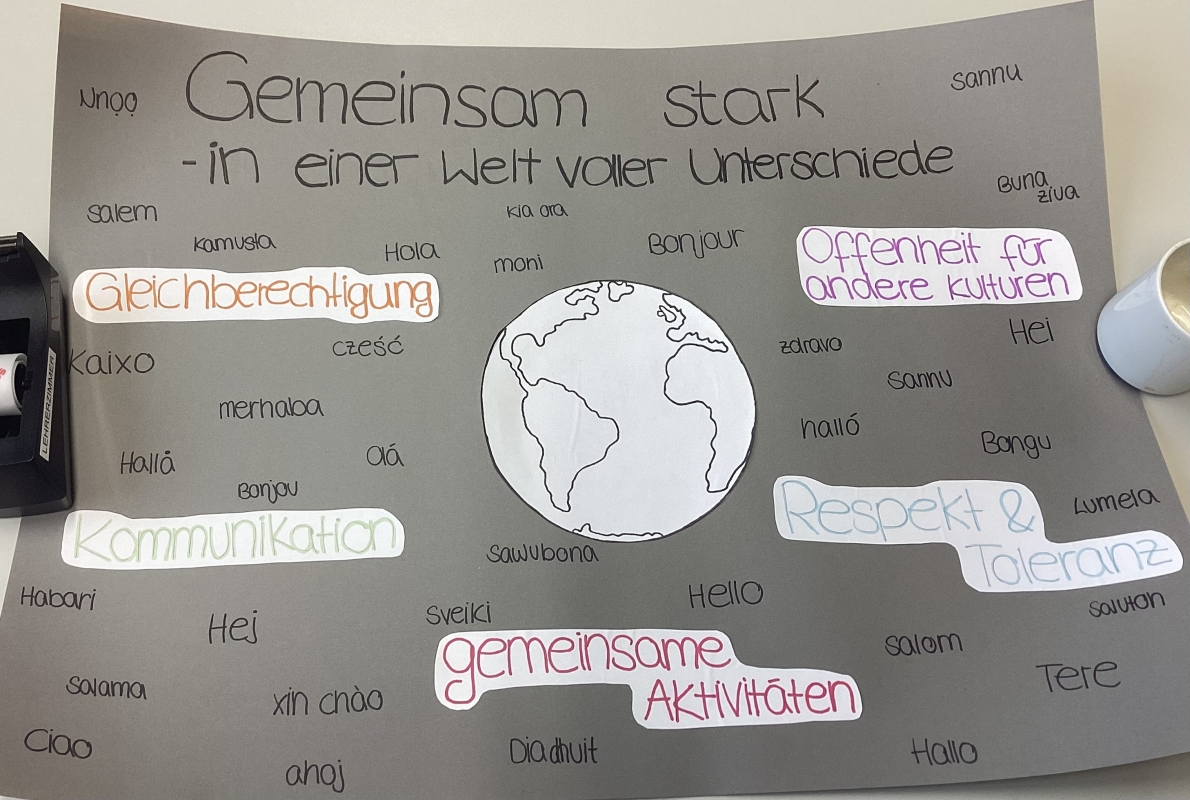 Nnọọ
Gemeinsam stark
Sannu
- in einer Welt voller Unterschiede
Buna
ziua
Salem
kia ora
Kamusta
Hola
moni
Bonjour
Offenheit für
andere Kulturen
Gleichberechtigung
Hei
Kaixo
cześć
zdravo
Sannu
merhaba
halló
Bongu
Hallå
Olá
Bonjou
Respekt &
Toleranz
Lumela
Kommunikation
Sawubona
Habari
Hej
Sveiki
Hello
Saluton
gemeinsame
Aktivitäten
Salom
Tere
Salama
xin chào
Ciao
ahoj
Dia dhuit
Hallo
LEHRERZIMMER